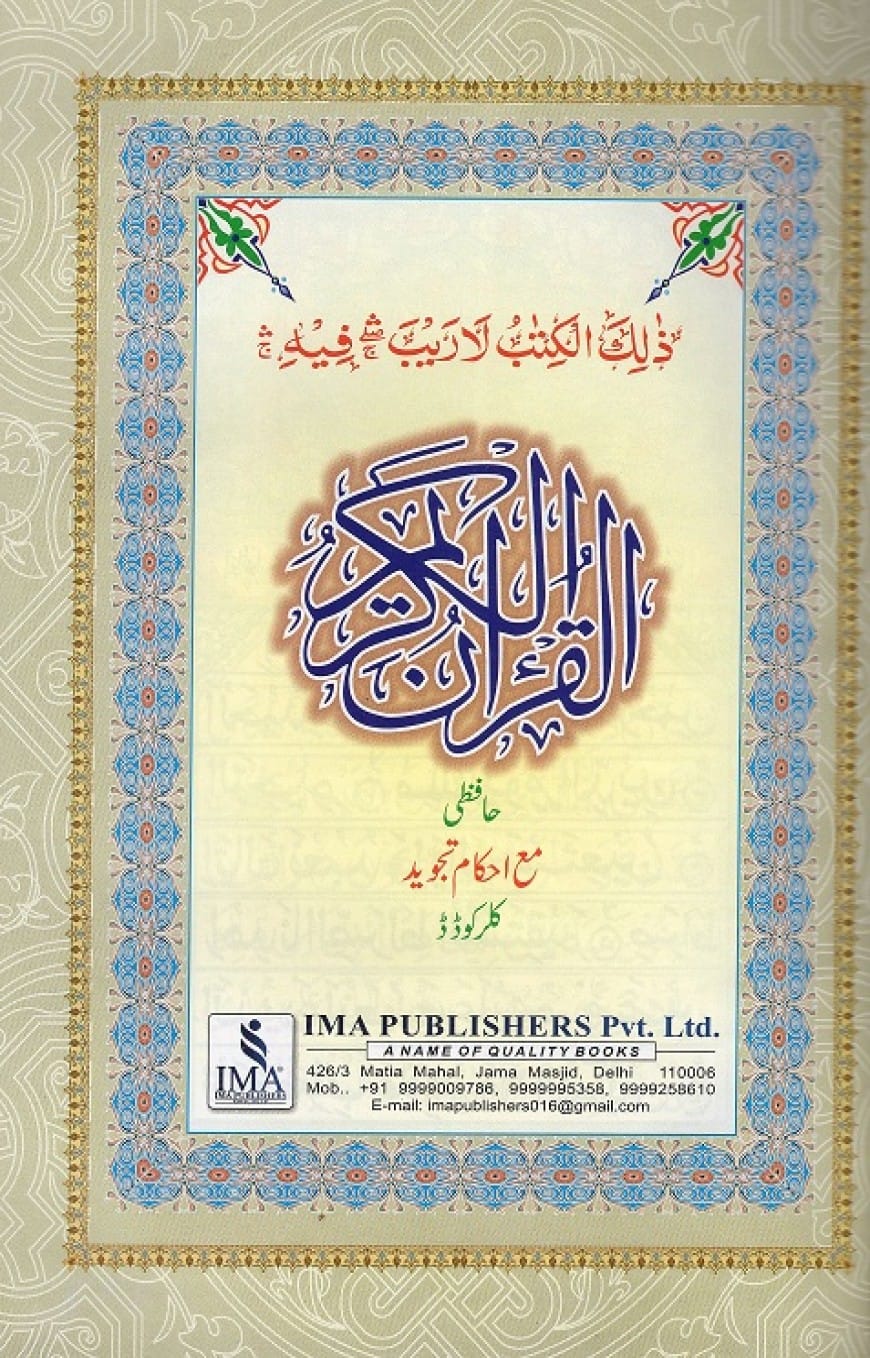 ذٰلِكَ الْكِتٰبُ لَا رَيْبَ ۛۖۚ فِيْهِ ۛۚ
القرآن الكريم
حافظی
مع احکام تجوید
کلر کوڈڈ
IMA PUBLISHERS Pvt. Ltd.
A NAME OF QUALITY BOOKS
426/3 Matia Mahal, Jama Masjid, Delhi 110006
Mob.. +91 9999009786, 9999995358, 9999258610
E-mail: imapublishers016@gmail.com
IMA®
IMA PUBLISHERS